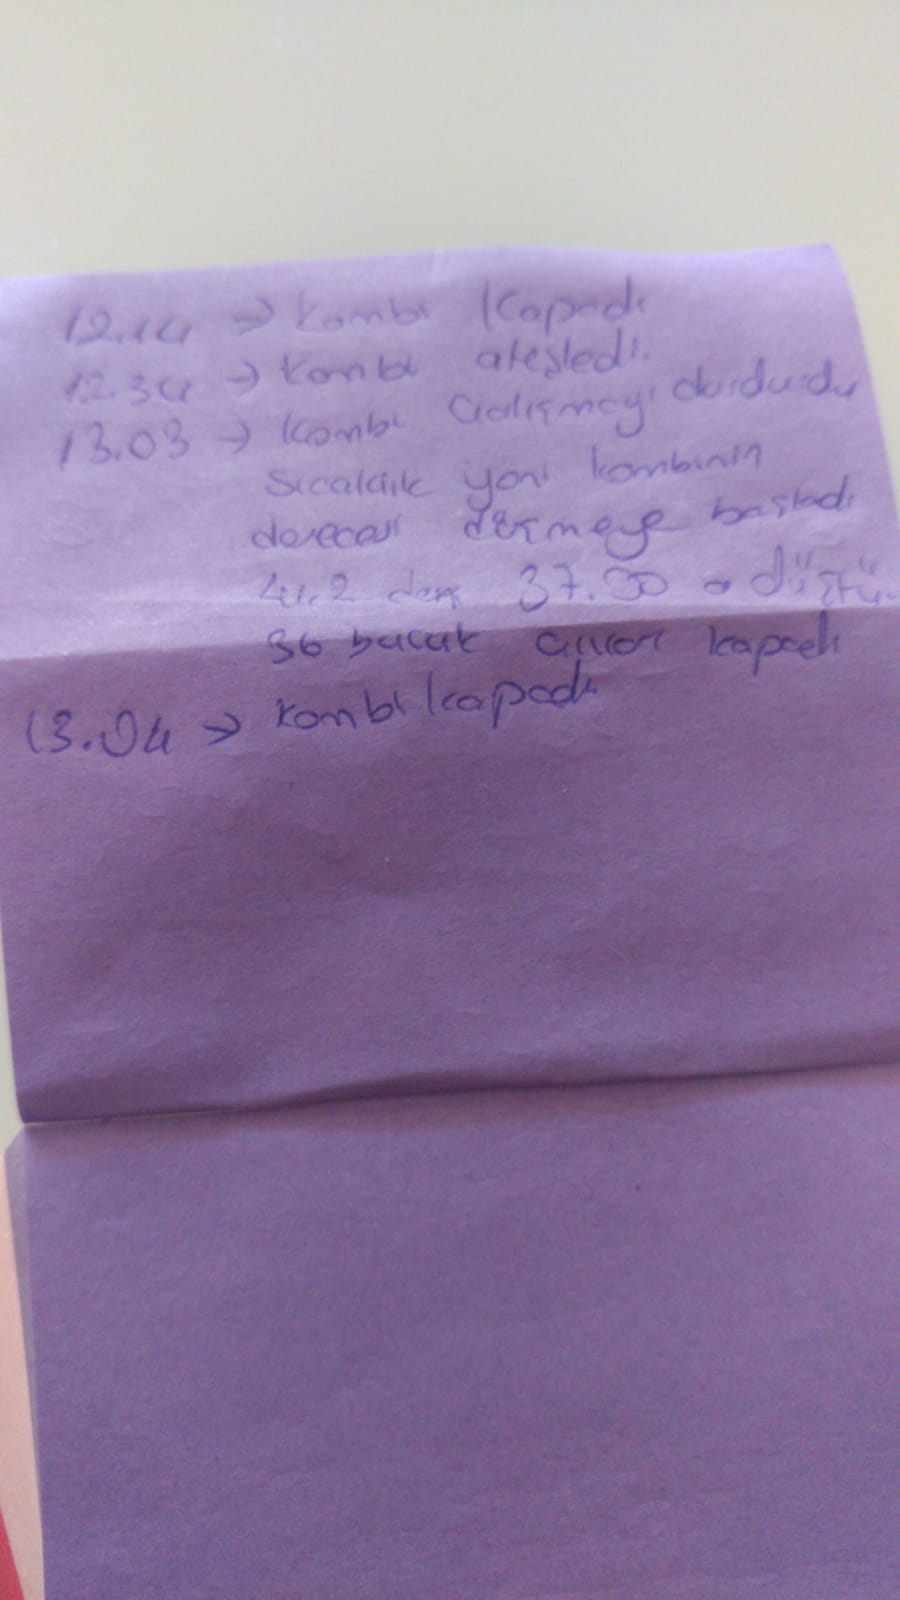 12.14 → kombi kapadı
12.34 → kombi ateşledi.
13.03 → kombi çalışmayı durdurdu
sıcaklık yani kombinin
derecesi düşmeye başladı
41.2 den 37.50 a düştü.
36 buçuk kapadı
13.04 → kombi kapadı